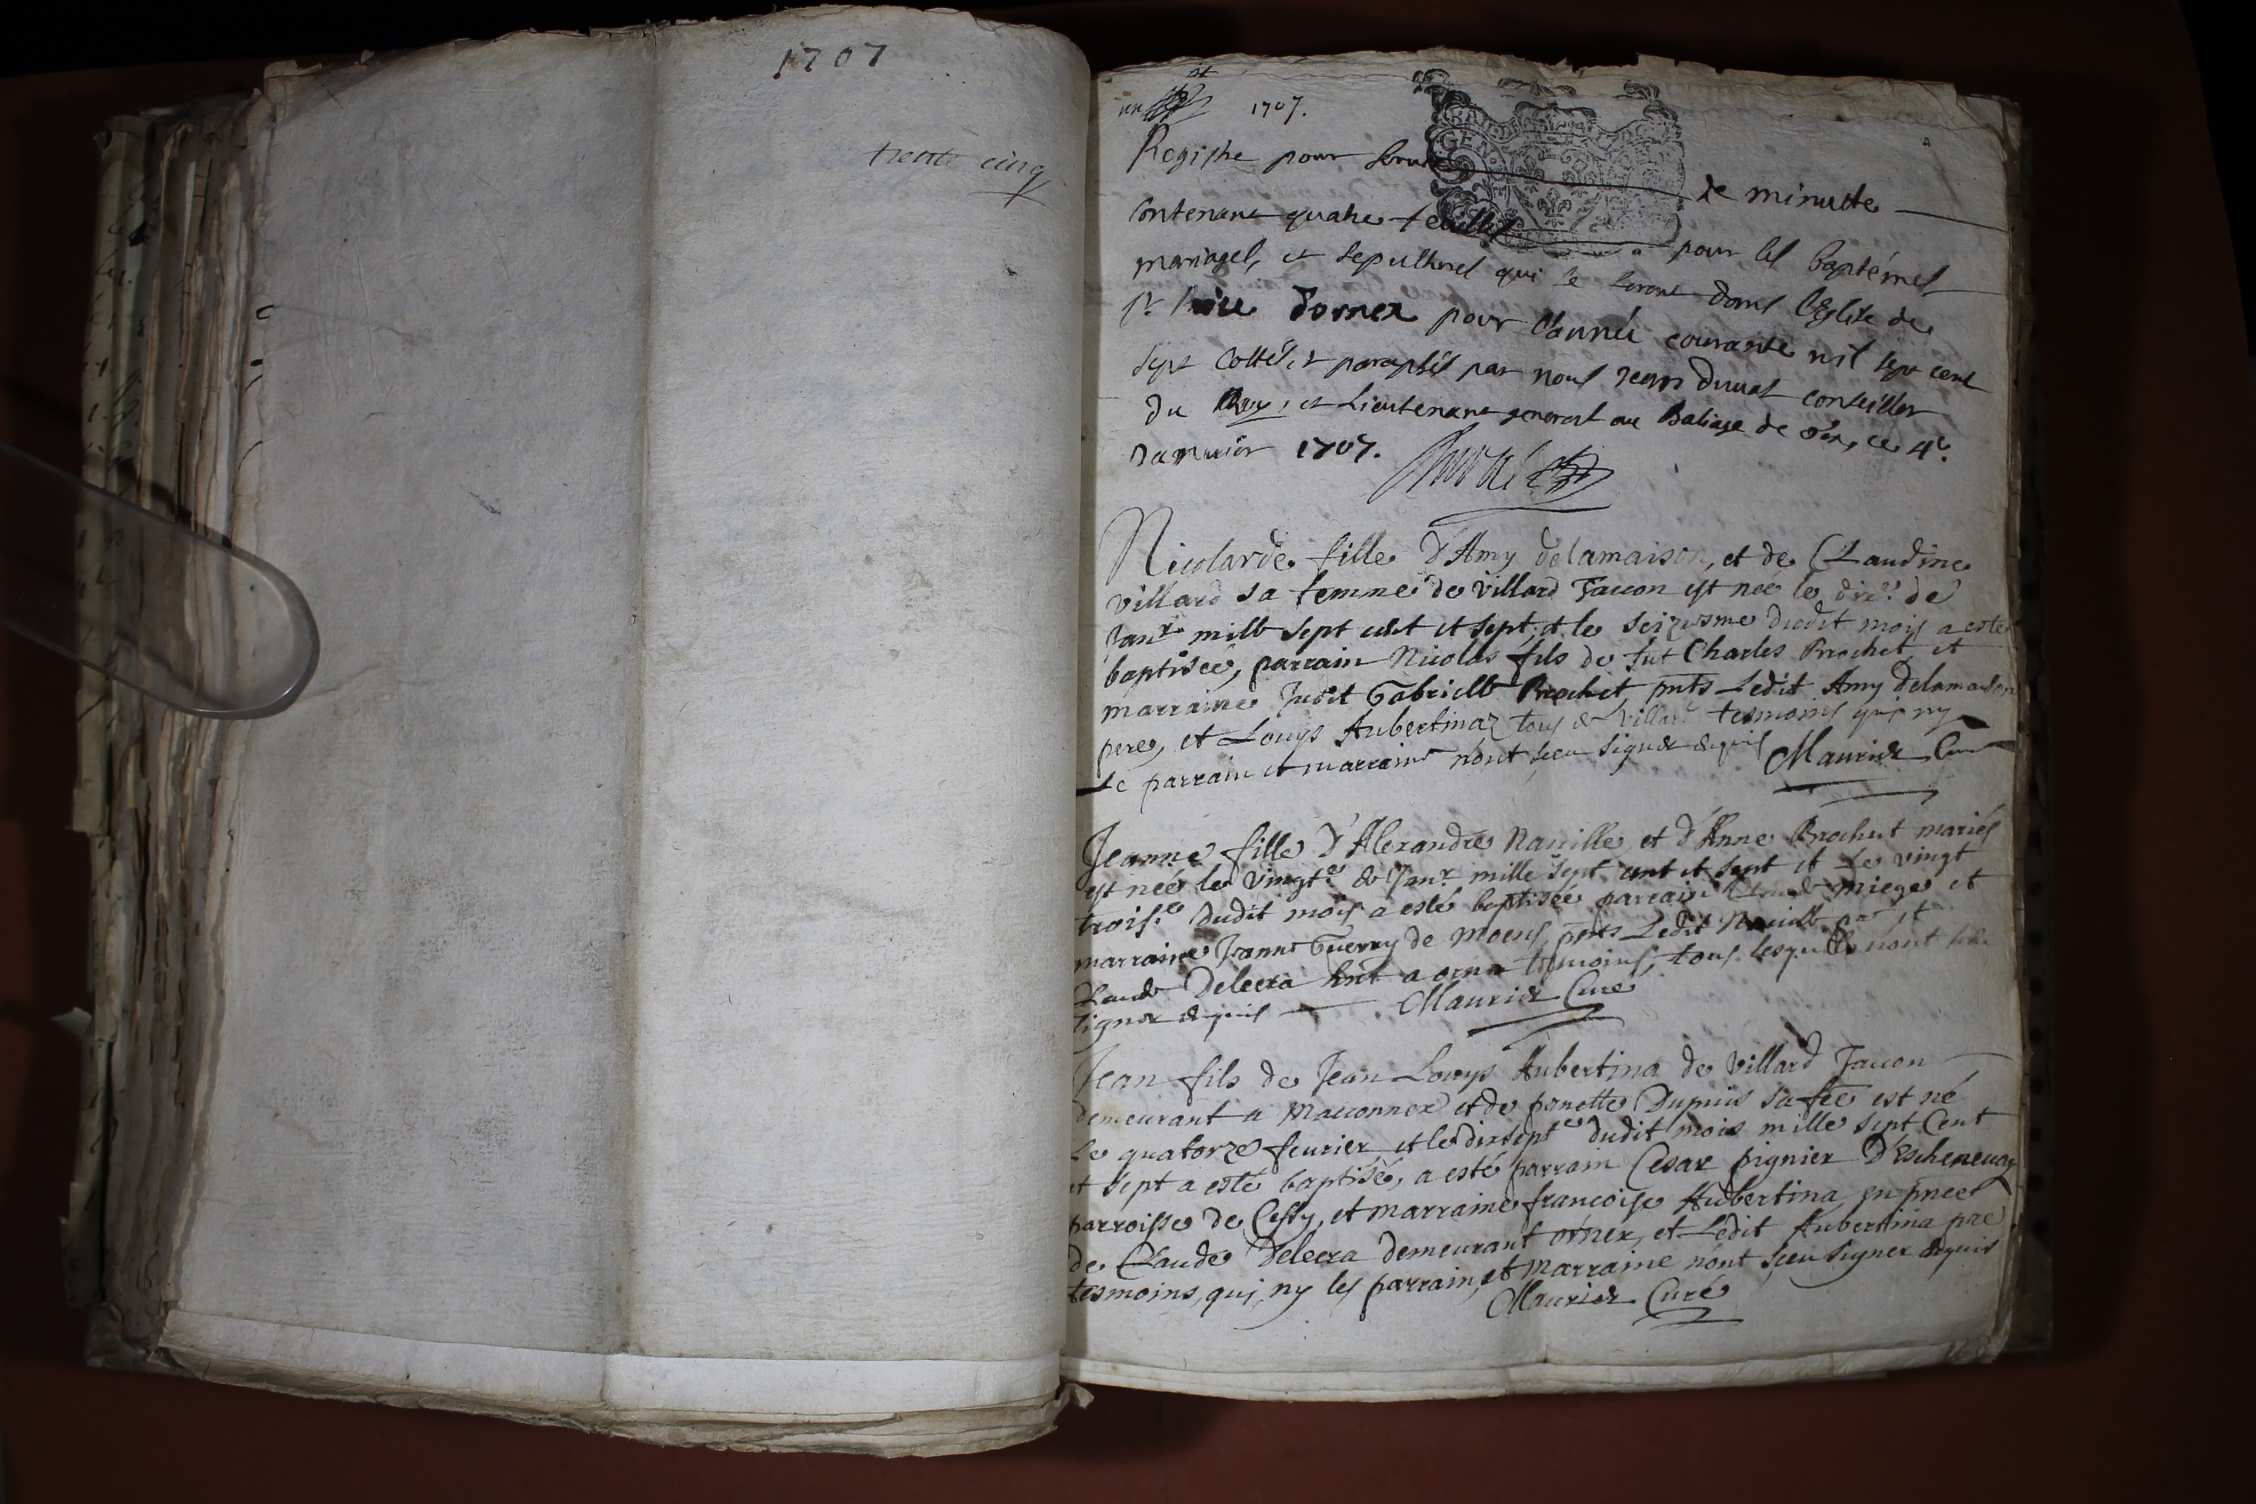 1707
trente cinq
un
1707.
Registre pour servir de minutte
contenant quatre feuillets pour les baptémes
mariages, et sepultures qui se feront dans l'Eglise de
st brice d'ornex pour l'année courante mil sept cent
sept cottés, et paraphés par nous Jean duval conseiller
du Roy, et Lieutenant general au Baliage de Gex, ce 4e.
Janvier 1707.
Nicolarde fille d'Amy delamaison, et de Claudine
villard sa femme de villard Taccon est neé le dixe. de
Janr. mille sept cent et sept, et le seiziesme dudit mois a esté
baptiseé, parrain Nicolas fils de fut Charles Brochet et
marraine Judit Gabrielle Brochet, pnts Ledit Amy Delamaison
pere, et Louys Aubertinaz tous de Villard tesmoins qui ny
Le parrain et marraine n'ont sceu signer enquis Maurier Curé
Jeanne fille d'Alexandre Naville et d'Anne Brochut mariés
est neé le vingte. de Janr. mille sept cent et sept et Le vingt
troise. dudit mois a esté baptiseé parrain Claude miege et
marraine Jeanne Guerry de moens, pnts Ledit Naville pere, et
Claude Delecra hnt a ornex tesmoins, tous lesquels n'ont sceu
signer enquis Maurier Curé
Jean fils de Jean Louys Aubertina de villard Taccon
demeurant a Maconnex et de pernette Dupuis sa fee est né
Le quatorze feurier, et le dixsepte dudit mois mille sept Cent
et sept a esté baptisé, a esté parrain Cesar pignier D'Escheneuay
parroisse de Cessy, et marraine francoise Aubertina, en pnce
de Claude Delecra demeurant ornex, et Ledit Aubertina pre
tesmoins, qui, ny les parrain, et marraine n'ont sceu signer enquis
Maurier Curé